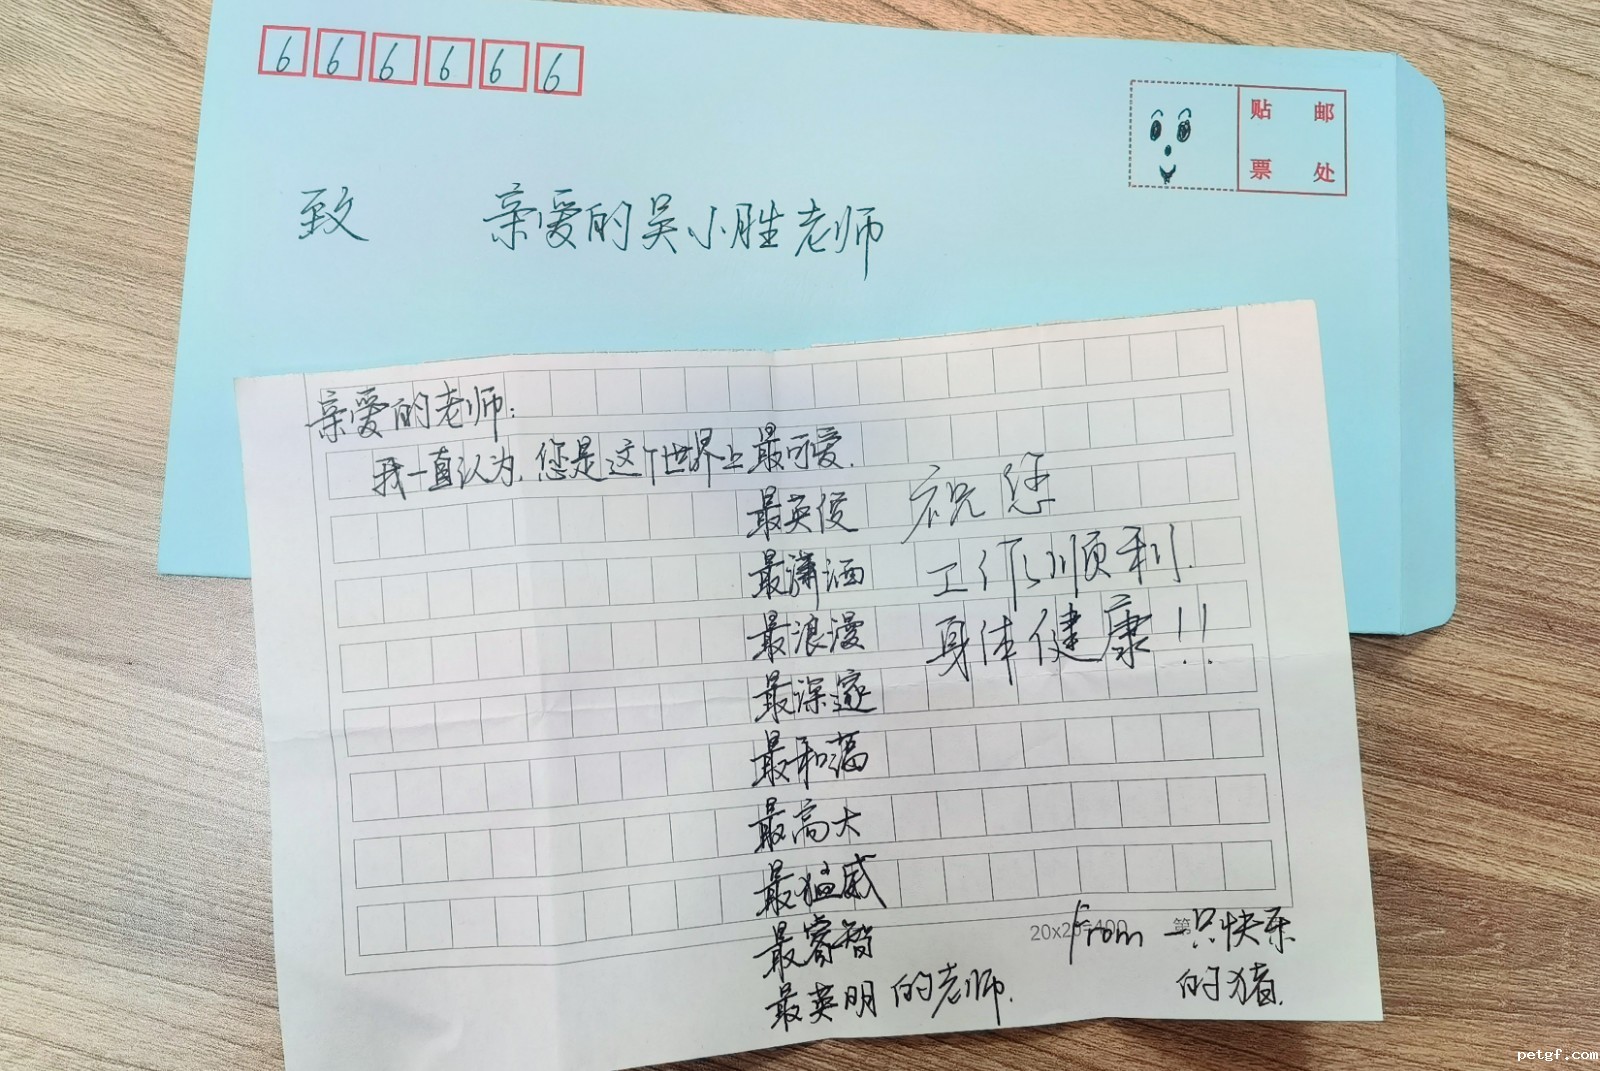 666666
贴 邮
票 处
致 亲爱的吴小胜老师
亲爱的老师：
我一直认为，您是这个世界上最可爱.
最英俊
最潇洒
最浪漫
最深邃
最和蔼
最高大
最猛威
最睿智
最英明的老师.
祝您
工作顺利.
身体健康!!
20x20=400 第
from 一只快乐
的猪.
petgf.com